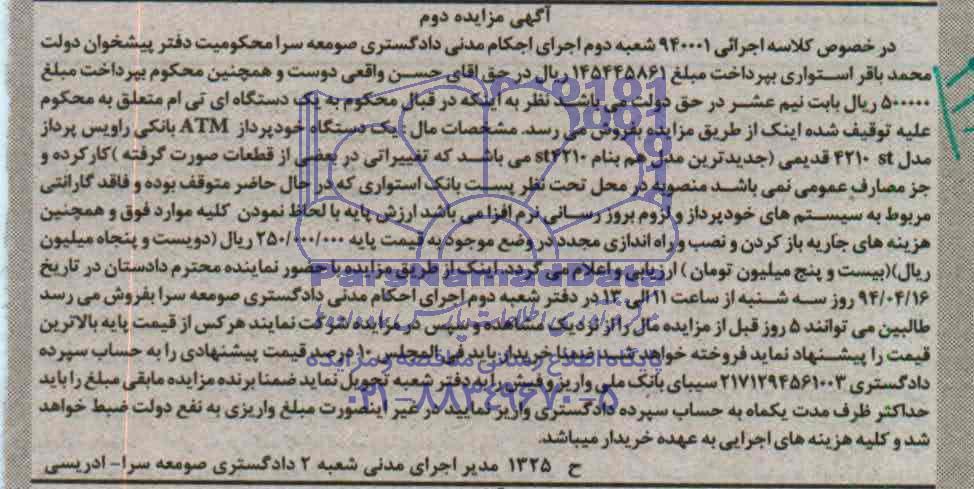 آگهی مزایده دوم
در خصوص کلاسه اجرائی ۹۴۰۰۰۱ شعبه دوم اجرای احکام مدنی دادگستری صومعه سرا محکومیت دفتر پیشخوان دولت
محمد باقر استواری بپرداخت مبلغ ۱۴۵۴۴۵۸۶۱ ریال در حق اقای حسن واقعی دوست و همچنین محکوم بپرداخت مبلغ
۵۰۰۰۰۰ ریال بابت نیم عشر در حق دولت می باشد نظر به اینکه در قبال محکوم به یک دستگاه ای تی ام متعلق به محکوم
علیه توقیف شده اینک از طریق مزایده بفروش می رسد. مشخصات مال : یک دستگاه خودپرداز ATM بانکی راویس پرداز
مدل st ۴۲۱۰ قدیمی (جدیدترین مدل هم بنام st۴۲۱۰ می باشد که تغییراتی در بعضی از قطعات صورت گرفته )کارکرده و
جز مصارف عمومی نمی باشد منصوبه در محل تحت نظر پست بانک استواری که در حال حاضر متوقف بوده و فاقد گارانتی
مربوط به سیستم های خودپرداز و لزوم بروز رسانی نرم افزا می باشد ارزش پایه با لحاظ نمودن کلیه موارد فوق و همچنین
هزینه های جاریه باز کردن و نصب و راه اندازی مجدد در وضع موجود به قیمت پایه ۲۵۰/۰۰۰/۰۰۰ ریال (دویست و پنجاه میلیون
ریال)(بیست و پنج میلیون تومان ) ارزیابی و اعلام می گردد. اینک از طریق مزایده با حضور نماینده محترم دادستان در تاریخ
۹۴/۰۴/۱۶ روز سه شنبه از ساعت ۱۱ الی ۱۳ در دفتر شعبه دوم اجرای احکام مدنی دادگستری صومعه سرا بفروش می رسد
طالبین می توانند ۵ روز قبل از مزایده مال را از نزدیک مشاهده و سپس در مزایده شرکت نمایند هر کس از قیمت پایه بالاترین
قیمت را پیشنهاد نماید فروخته خواهد شد. ضمنا خریدار باید فی المجلس ۱۰ درصد قیمت پیشنهادی را به حساب سپرده
دادگستری ۲۱۷۱۲۹۴۵۶۱۰۰۳ سیبای بانک ملی واریز و فیش را به دفتر شعبه تحویل نماید ضمنا برنده مزایده مابقی مبلغ را باید
حداکثر ظرف مدت یکماه به حساب سپرده دادگستری واریز نمایید در غیر اینصورت مبلغ واریزی به نفع دولت ضبط خواهد
شد و کلیه هزینه های اجرایی به عهده خریدار میباشد.
ح ۱۳۲۵ مدیر اجرای مدنی شعبه ۲ دادگستری صومعه سرا- ادریسی
ParsNamadData
پایگاه اطلاع رسانی مناقصه و مزایده
۰۲۱-۸۸۳۴۹۶۷۰-۵